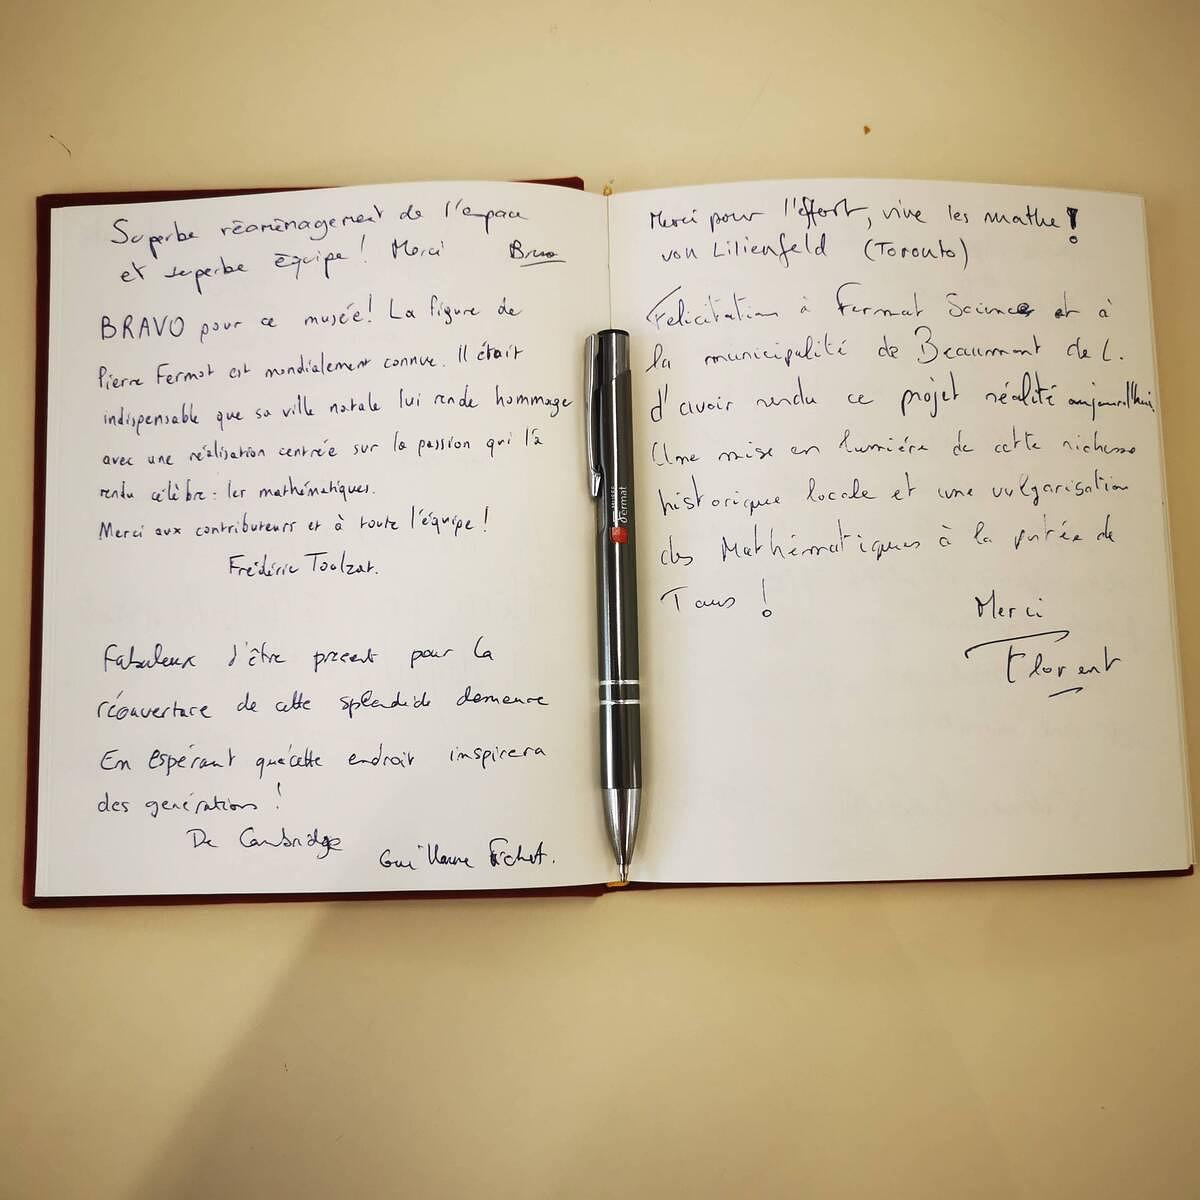 Superbe réaménagement de l'espace
et superbe équipe ! Merci Bruno
BRAVO pour ce musée! La figure de
Pierre Fermat est mondialement connue. Il était
indispensable que sa ville natale lui rende hommage
avec une réalisation centrée sur la passion qui l'a
rendu célèbre : les mathématiques.
Merci aux contributeurs et à toute l'équipe !
Frédéric Toulzat.
Fabuleux d'être présent pour la
réouverture de cette splendide demeure
En Espérant que cette endroit inspirera
des générations !
De Cambridge
Guillaume Fichet.
MUSÉE
Fermat
Merci pour l'effort, vive les maths !
von Lilienfeld (Toronto)
Felicitation à Fermat Science et à
la municipalité de Beaumont de L.
d'avoir rendu ce projet réalité aujourd'hui.
Une mise en lumière de cette richesse
historique locale et une vulgarisation
des Mathématiques à la portée de
Tous !
Merci
Florent